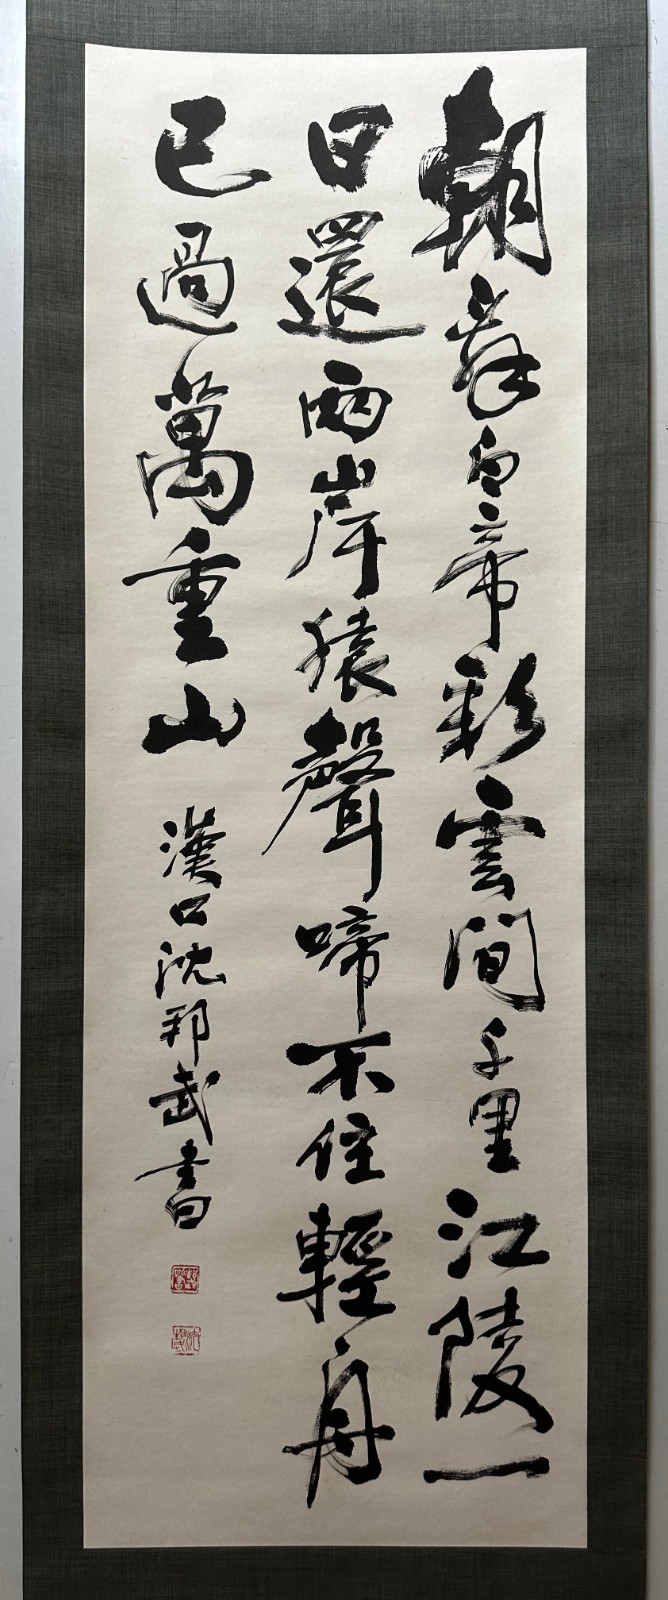 朝辞白帝彩雲間千里江陵一
日還兩岸猿聲啼不住輕舟
已過萬重山
漢口沈邦武書